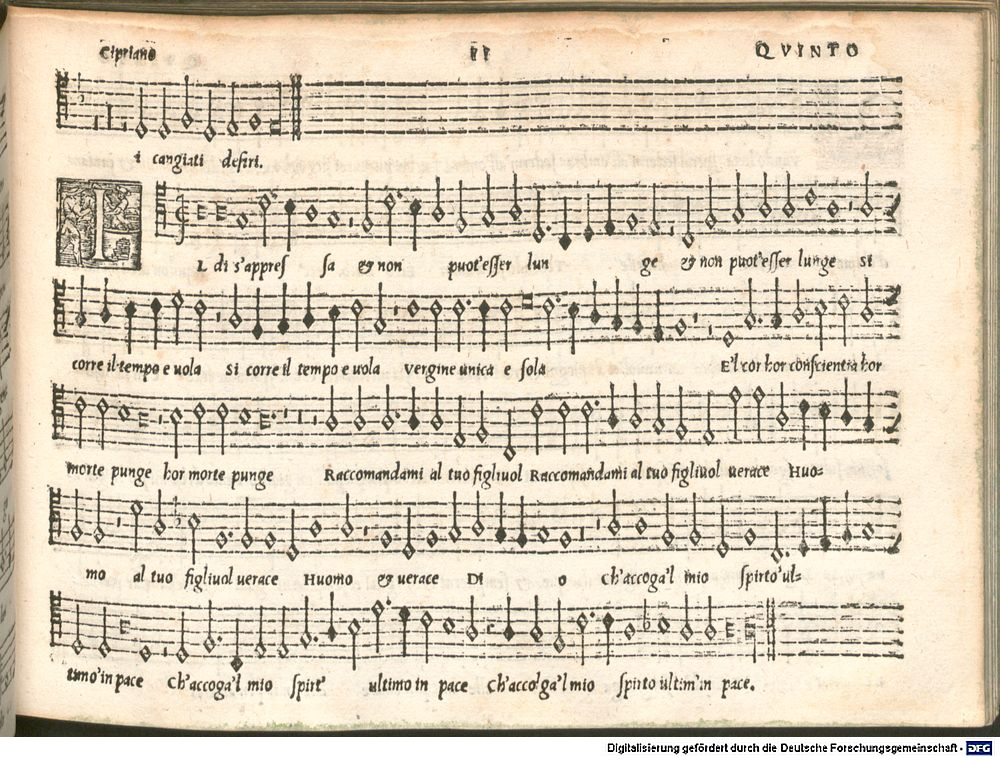 Cipriano II QVINTO
i cangiati desiri.
IL di s'appres sa & non puot'esser lun ge & non puot'esser lunge si
corre il tempo e uola si corre il tempo e uola vergine unica e sola E'l cor hor conscientia hor
morte punge hor morte punge Raccomandami al tuo figliuol Raccomandami al tuo figliuol uerace Huo-
mo al tuo figliuol uerace Huomo & uerace Di o ch'accoga'l mio spirto'ul-
timo'in pace Ch'accoga'l mio spirt' ultimo in pace Ch'accoga'l mio spirto ultim'in pace.
Digitalisierung gefördert durch die Deutsche Forschungsgemeinschaft - DFG